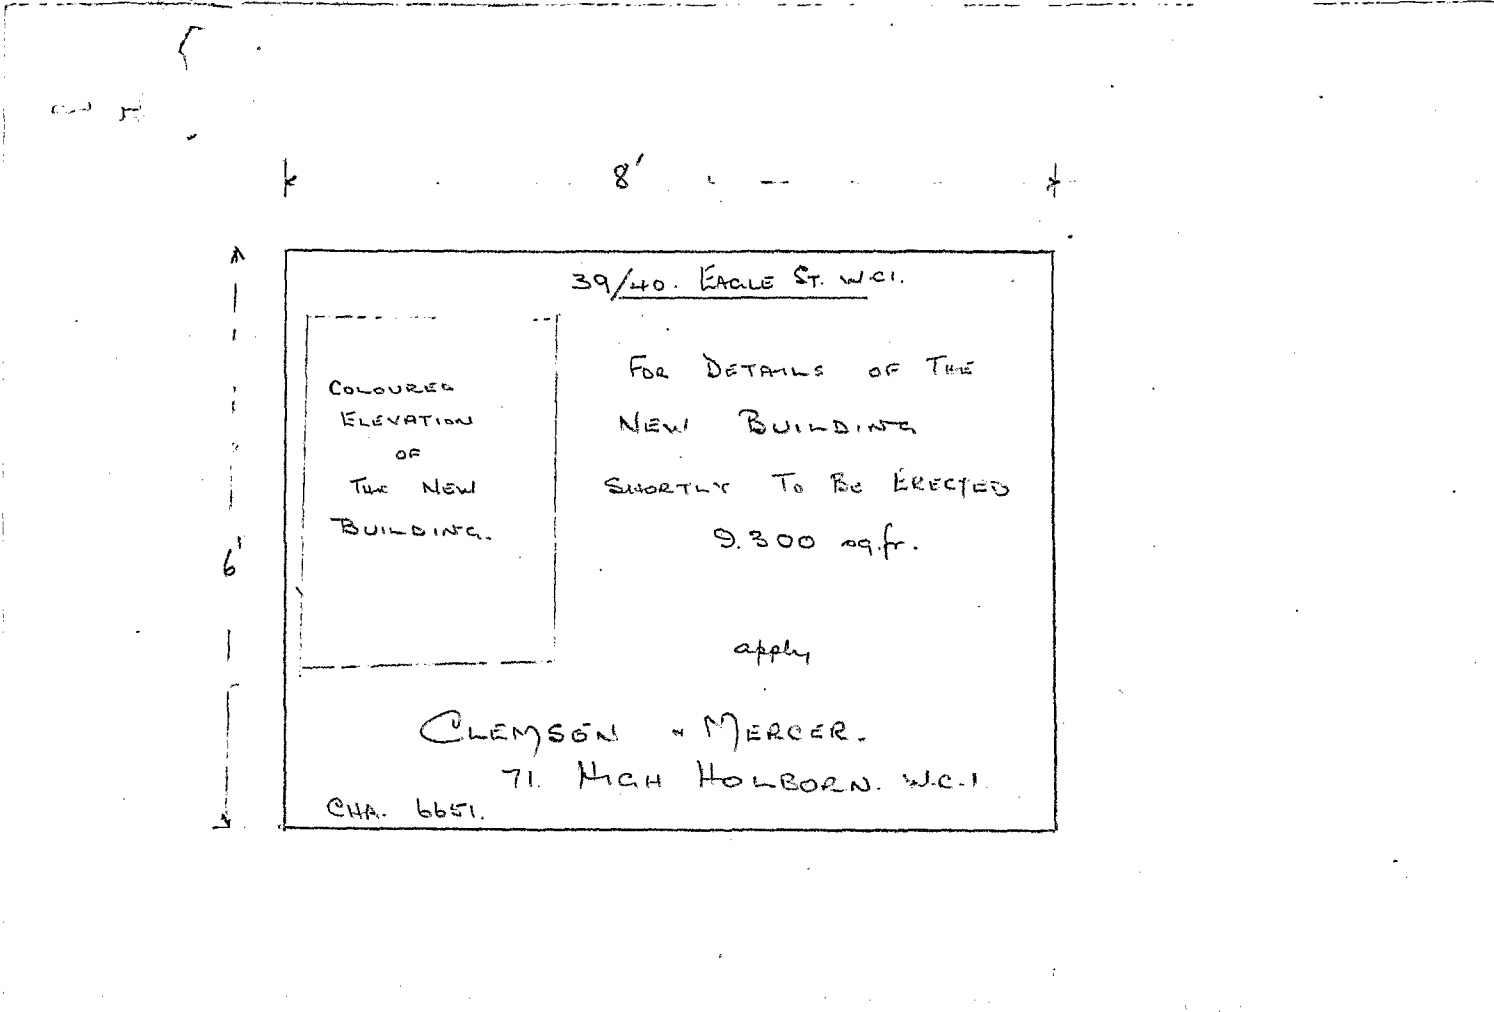 8'
39/40. EAGLE ST. W.C1.
COLOURED
ELEVATION
OF
THE NEW
BUILDING.
FOR DETAILS OF THE
NEW BUILDING
SHORTLY TO BE ERECTED
9.300 sq.ft.
6'
apply
CLEMSON & MERCER.
71. HIGH HOLBORN. W.C.1
CHA. 6651.